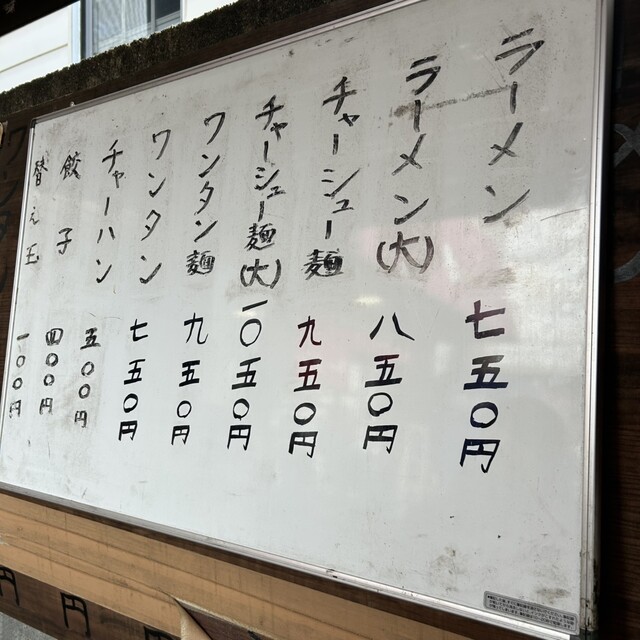 ラーメン 七五〇円
ラーメン(大) 八五〇円
チャーシュー麺 九五〇円
チャーシュー麺(大) 一〇五〇円
ワンタン麺 九五〇円
ワンタン 七五〇円
チャーハン 五〇〇円
餃子 四〇〇円
替え玉 一〇〇円
円
円